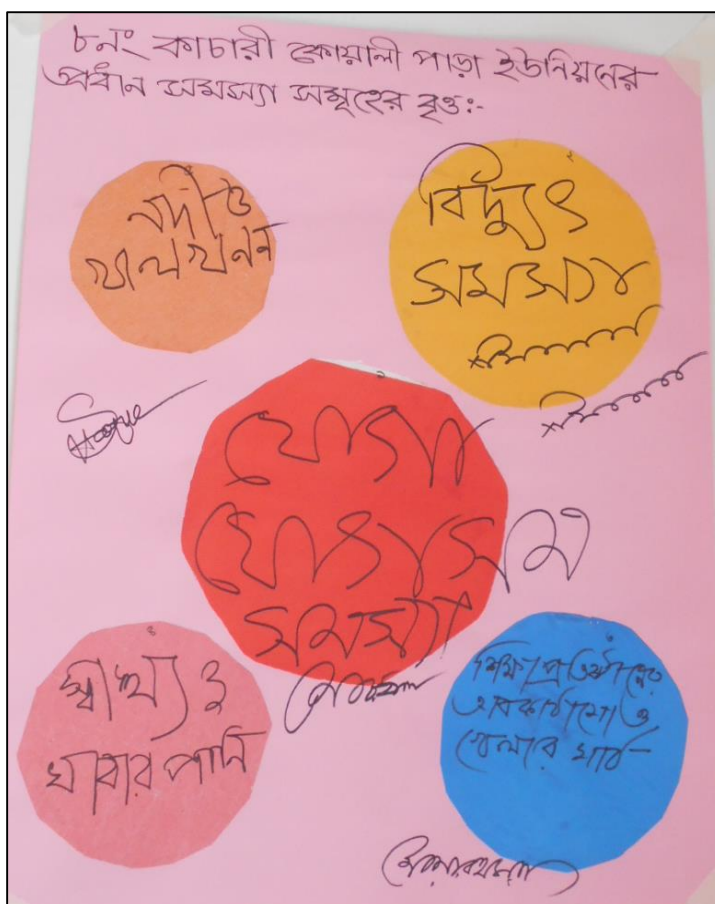 ৮নং কাচারী কোয়ালী পাড়া ইউনিয়নের
প্রধান সমস্যা সমূহের বৃত্ত:-
নদী ও
খাল খনন
বিদ্যুৎ
সমস্যা
যোগা
সমস্যা
স্বাস্থ্য ও
খাবার পানি
শিক্ষা প্রতিষ্ঠানের
অবকাঠামো ও
খেলার মাঠ